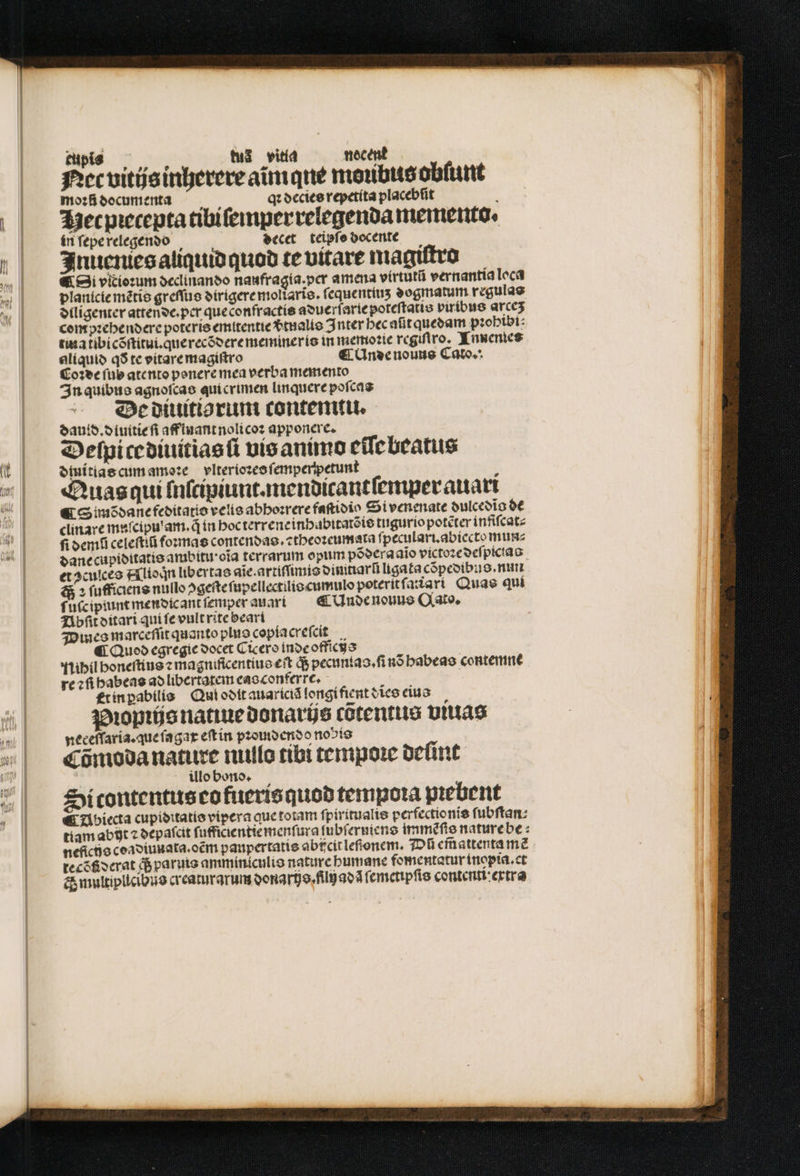 cupis tuã vitia nocent
Nec vitijs inherere aĩm que moribus obsunt
morũ documenta qꝛ decies repetita placebũt
Hec precepta tibi semper relegenda memento.
in sepe relegendo decet teipso docente
Inuenies aliquid quod te vitare magistro
¶ Si viciorum declinando naufragia. per amena virtutũ vernantia loca
planicie mẽtis gressus dirigere moliaris. sequentiuꝫ dogmatum regulas
diligenter attende. per que confractis aduersarie potestatis viribus arceꝫ
comprehendere poteris emitentie Inter hec aũt quedam prohibi⸗
tiua tibi cõstitui. que recõdere memineris in memorie registro. Inuenies
aliquid qđ te vitare magistro ¶ Unde nouus Cato.
Corde sub atento ponere mea verba memento
In quibus agnoscas qui crimen linquere poscas
De diuitiarum contemtu.
dauid. diuitie si affluant noli cor apponere.
Despice diuitias si vis animo esse beatus
diuitias cum amore vlteriores semper petunt
Quas qui suscipiunt. mendicant semper auari
¶ Si mũdane feditatis velis abhorrere fastidio Si venenate dulcedĩs de
clinare muscipulam. q̃ in hoc terrene inhabitatõis tugurio potẽter infiscat⸗
si demũ celestiũ formas contendas. ⁊ theoreumata speculari. abiecto mun⸗
dane cupiditatis ambitu. oĩa terrarum opum põdera aĩo victore despicias
et ꝯculces Alioqñ libertas aĩe. artissimis diuitiarũ ligata cõpedibus. nun
ꝙ̃ ⁊ sufficiens nullo ꝯgeste supellectilis cumulo poterit saciari Quas qui
suscipiunt mendicant semper auari ¶ Unde nouus Cato.
Absit ditari qui se vult rite beari
Diues marcessit quanto plus copia crescit
¶ Quod egregie docet Cicero in de officijs
Nihil honestius ⁊ magnificentius est ꝙ̃ pecunias. si nõ habeas contemne
re ⁊ si habeas ad libertatem eas conferre.
Et in ꝑabilis Qui odit auariciã longi fient dies eius
Proprijs nature donarijs cõtentus viuas
necessaria. que sagax est in prouidendo nobis
Cõmoda nature nullo tibi tempore desint
illo bono.
Si contentus eo fueris quod tempora prebent
¶ Abiecta cupiditatis vipera que totam spiritualis perfectionis substan⸗
tiam abijt ⁊ depascit sufficientie mensura subseruiens immẽsis nature be⸗
neficijs coadiuuata. oẽm paupertatis abijcit lesionem. Dũ em̃ attenta mẽ
te cõsiderat ꝙ̃ paruis amminiculis nature humane fomentatur inopia. et
ꝙ̃ multiplicibus creaturarum donarijs. semetipsis contenti: extra